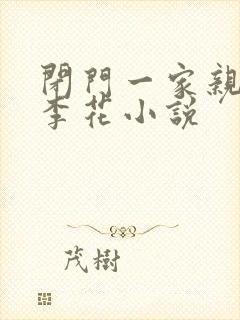 閉門一家親
李花小説
茂樹